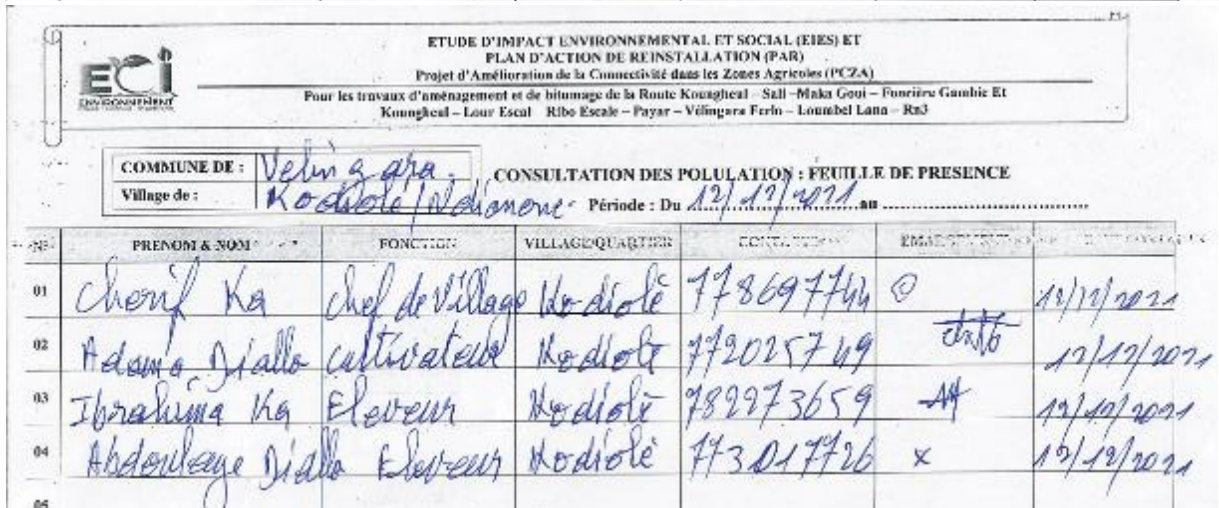 ETUDE D'IMPACT ENVIRONNEMENTAL ET SOCIAL (EIES) ET
PLAN D'ACTION DE REINSTALLATION (PAR)
Projet d'Amélioration de la Connectivité dans les Zones Agricoles (PCZA)
Pour les travaux d'aménagement et de bitumage de la Route Koungheul – Sali – Maka Goui – Foncière Gambie Et
Koungheul – Lour Escal – Ribo Escale – Payar – Vélingara Ferlo – Loumbel Lana – Rn3
ECI
ENVIRONNEMENT
COMMUNE DE : Velingara
Village de : Kodiolé/
CONSULTATION DES POLULATION : FEUILLE DE PRESENCE
Période : Du 12/12/2021 au
N° PRENOM & NOM FONCTION VILLAGE/QUARTIER
01 Cherif Ka Chef de Village Kodiolè 778697744 12/12/2021
02 Adama Diallo cultivateur Kodiolè 772025749 12/12/2021
03 Ibrahima Ka Eleveur Kodiolè 782273659 12/12/2021
04 Abdoulaye Diallo Eleveur Kodiolè 773017726 x 12/12/2021
05